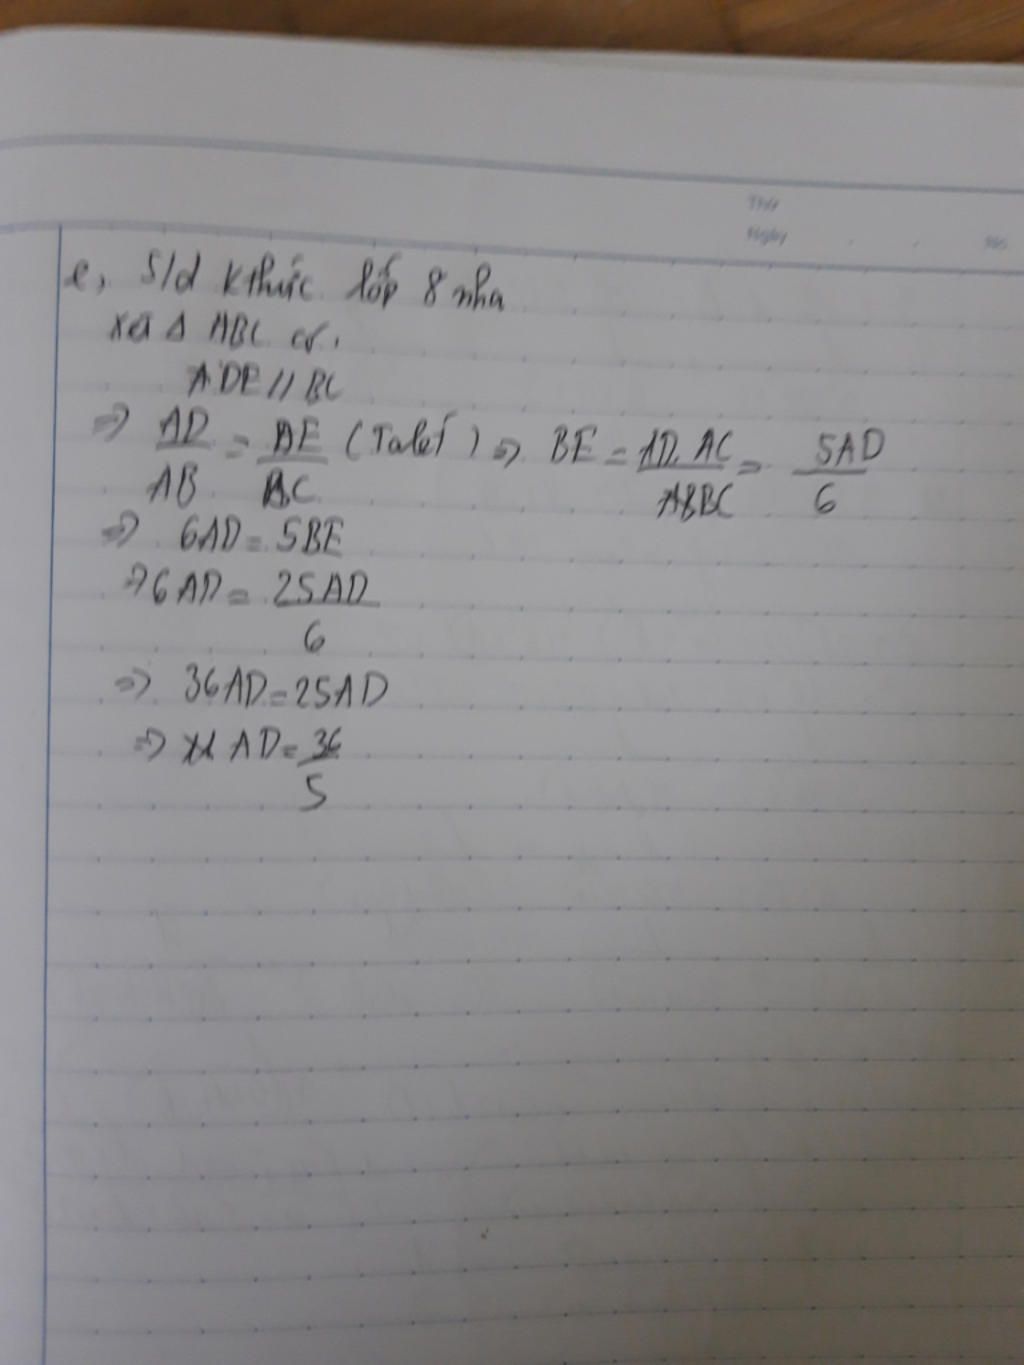 Thứ
Ngày No.
e, S/d kthức lớp 8 nha
Xét Δ ABC có,
DE // BC
=> AD/AB = DE/BC (Talét) => BE = AD.AC/BC = 5AD/6
=> 6AD = 5BE
=> 6AD = 25AD/6
=> 36AD = 25AD
=> AD = 36/5